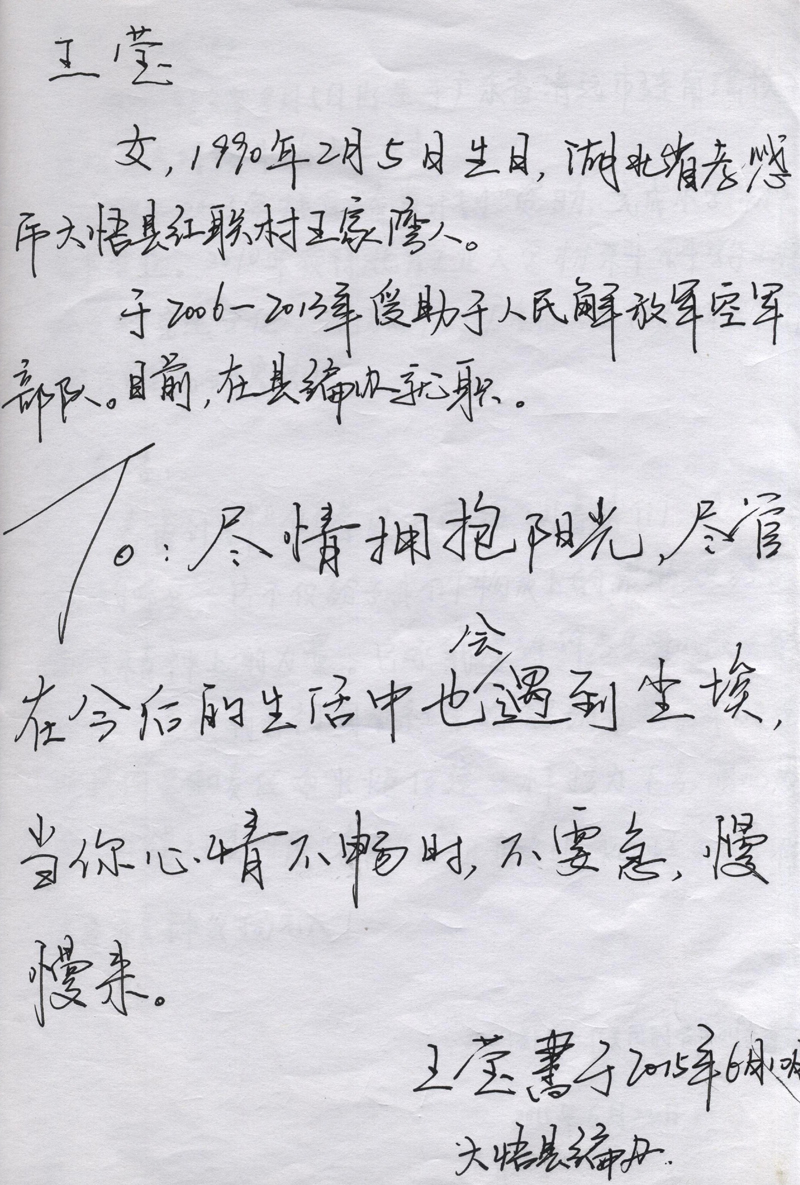 王莹
女，1990年2月5日生日，湖北省孝感
市大悟县红联村王家湾人。
于2006—2013年受助于人民解放军空军
部队。目前，在县编办就职。
To：尽情拥抱阳光，尽管
在今后的生活中也会遇到尘埃，
当你心情不畅时，不要急，慢
慢来。
王莹書于2015年6月10日
大悟县编办.